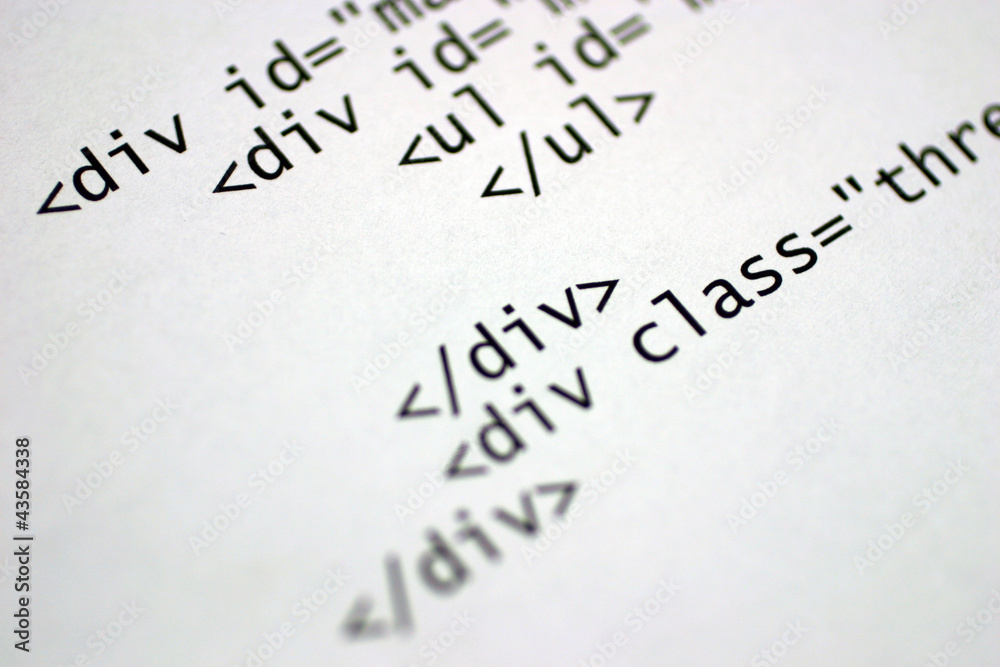 <div id="ma
<div id="m
<ul id="
</ul>
</div>
<div class="thre
</div>
Adobe Stock | #43584338